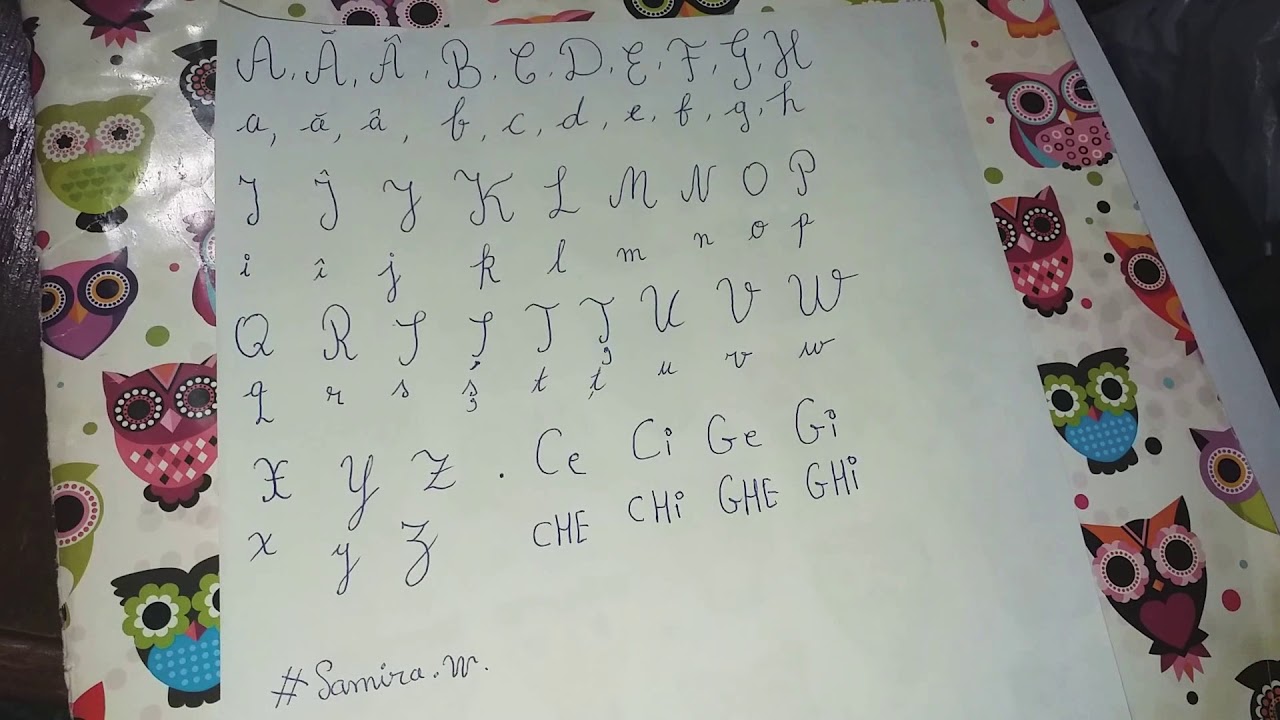 A, Ă, Â, B, C, D, E, F, G, H
a, ă, â, b, c, d, e, f, g, h
I Î J K L M N O P
i î j k l m n o p
Q R S Ș T Ț U V W
q r s ș t ț u v w
X Y Z . Ce Ci Ge Gi
x y z CHE CHi GHE GHi
#Samira.W.